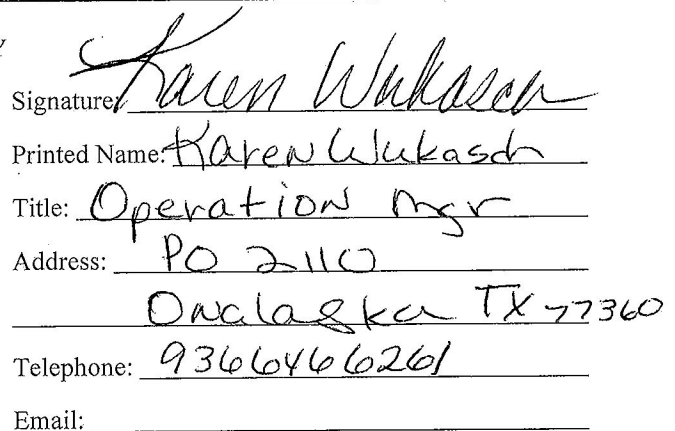 Signature: Karen Wukasch
Printed Name: Karen Wukasch
Title: Operation Mgr
Address: PO 2110
Onalaska TX 77360
Telephone: 9366466261
Email: